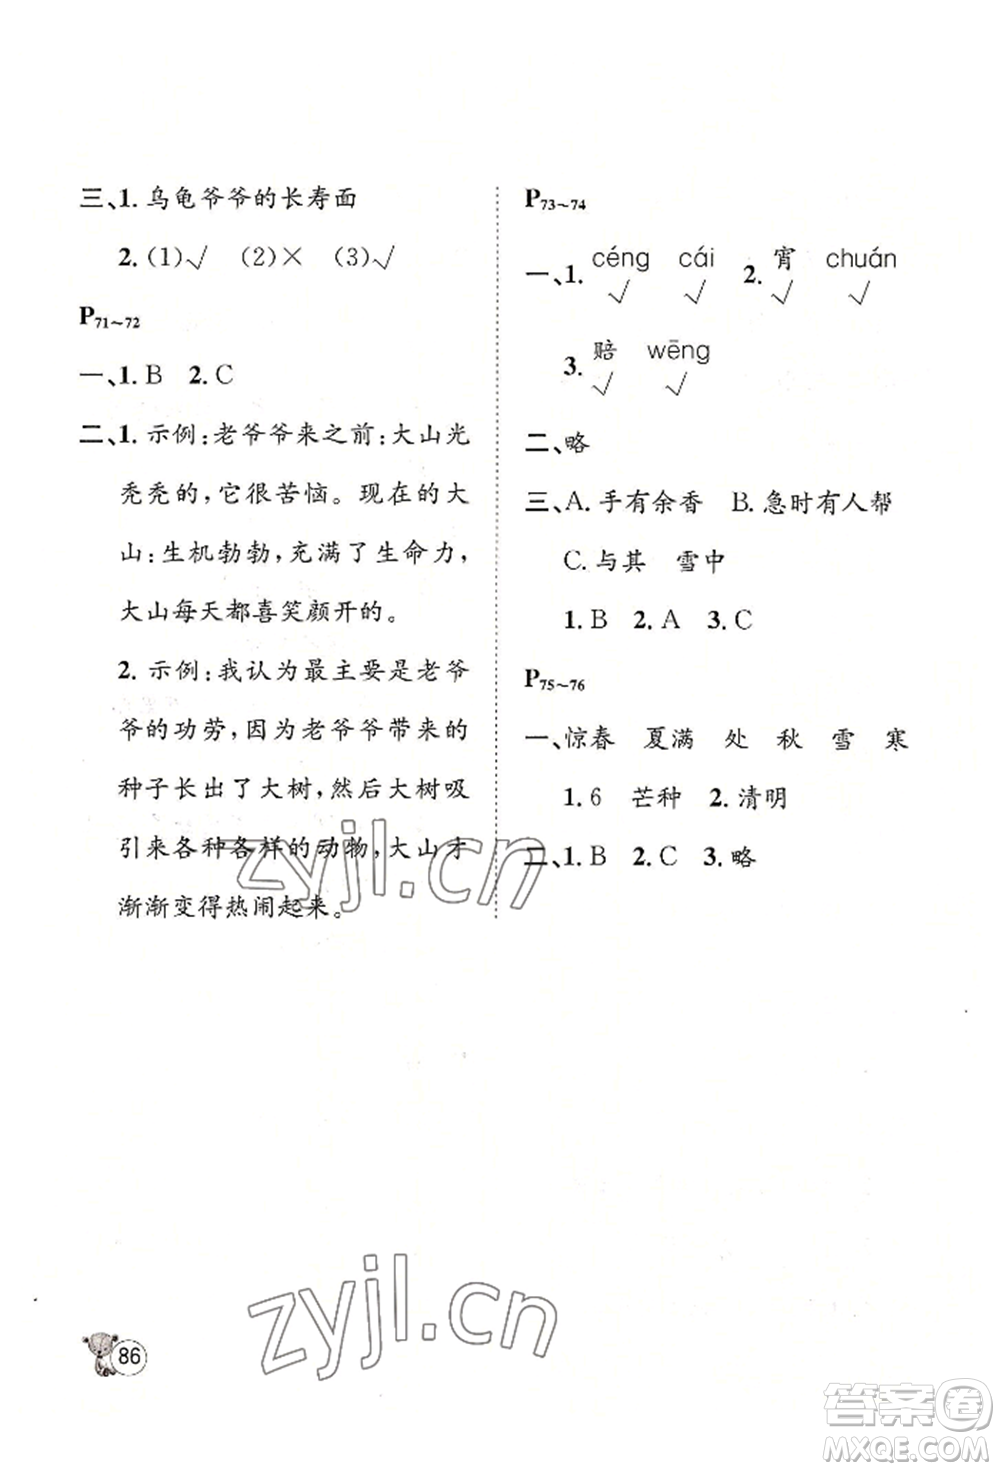 三、1. 乌龟爷爷的长寿面
2. (1)√ (2)× (3)√
P71~72
一、1. B 2. C
二、1. 示例:老爷爷来之前:大山光
秃秃的,它很苦恼。现在的大
山:生机勃勃,充满了生命力,
大山每天都喜笑颜开的。
2. 示例:我认为最主要是老爷
爷的功劳,因为老爷爷带来的
种子长出了大树,然后大树吸
引来各种各样的动物,大山才
渐渐变得热闹起来。
P73~74
一、1. céng √ cái √ 2. 宵 √ chuán √
3. 赔 √ wēng √
二、略
三、A. 手有余香 B. 急时有人帮
C. 与其 雪中
1. B 2. A 3. C
P75~76
一、惊春 夏满 处 秋 雪 寒
1. 6 芒种 2. 清明
二、1. B 2. C 3. 略
zyjl.cn
zyjl.cn
86
答案圈
MXQE.COM